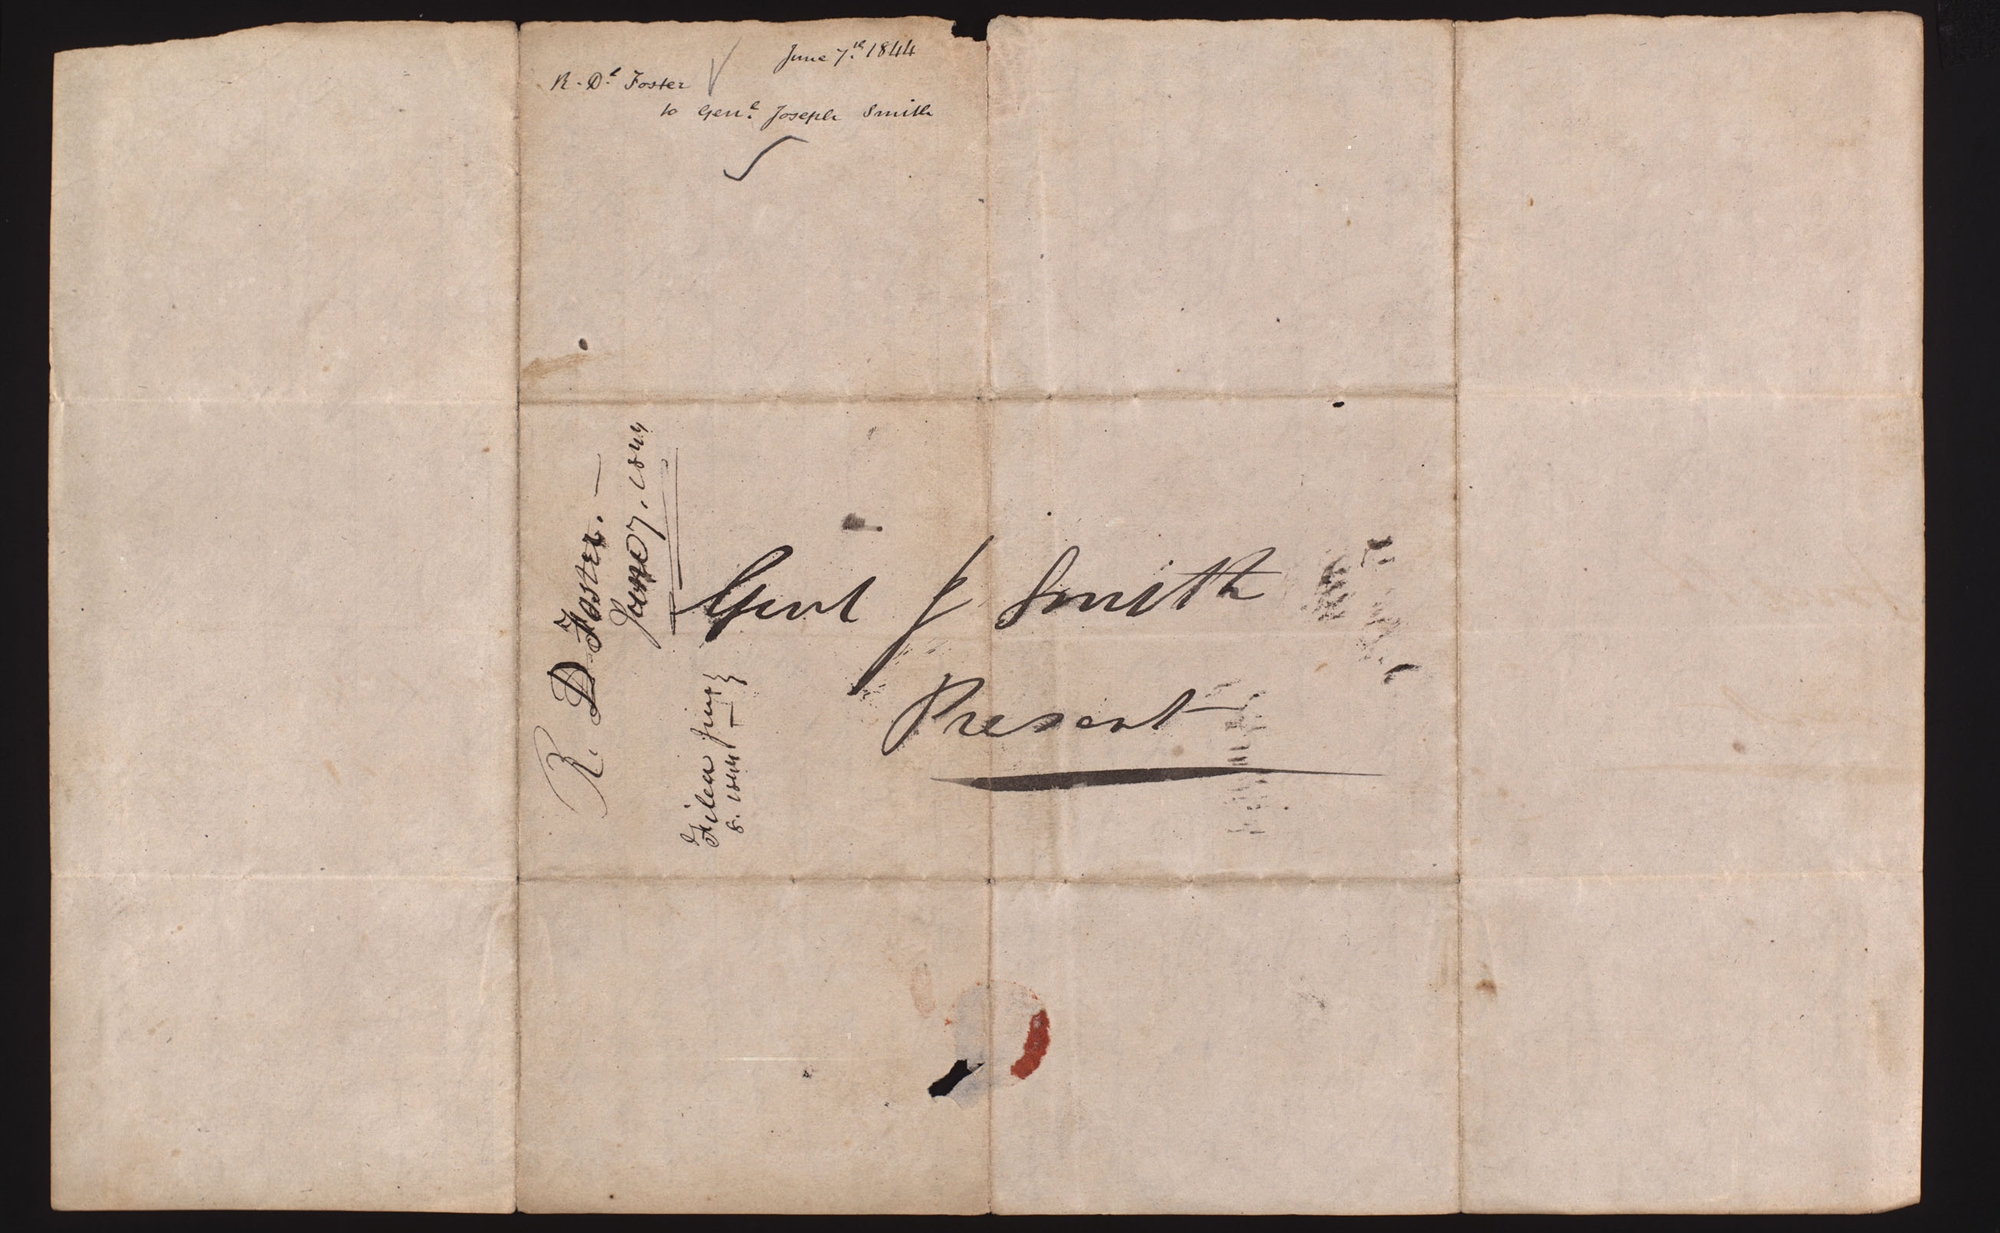 June 7th. 1844
R. Dl. Foster
to Genl. Joseph Smith
R. D. Foster. —
June 7. 1844
Genl J Smith
Present
Filed June
8. 1844 —